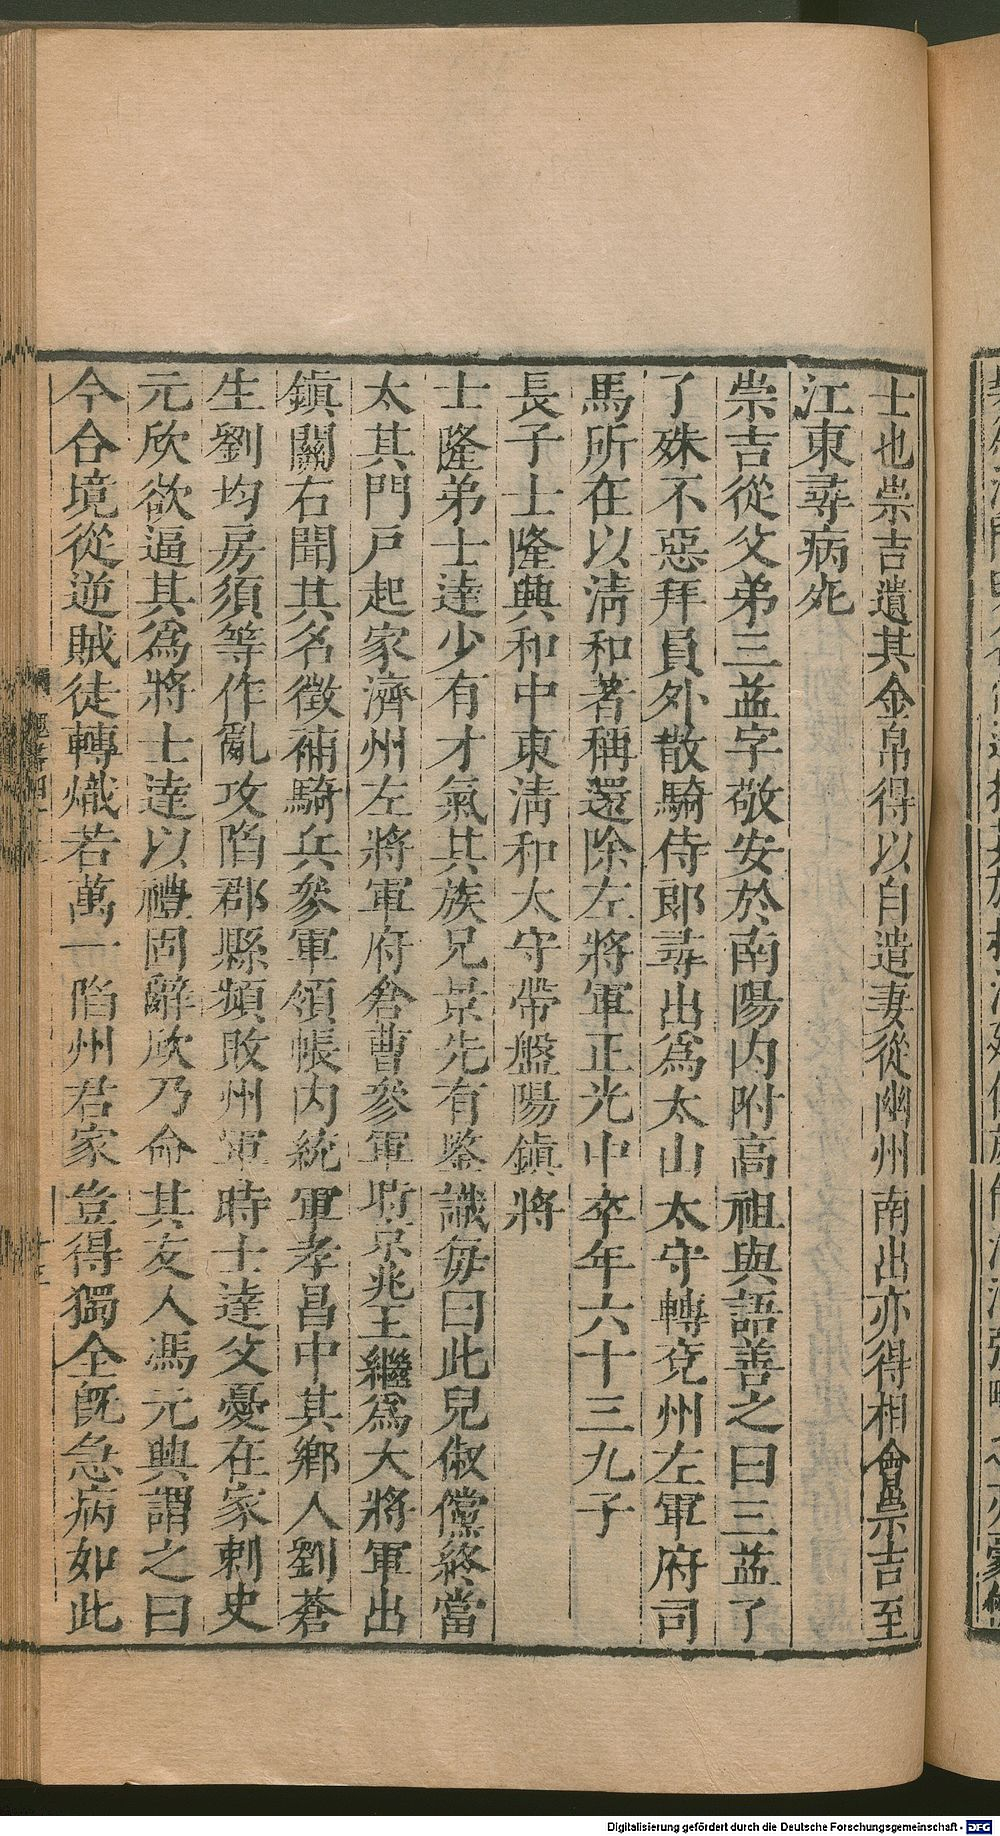 士也崇吉遺其金帛得以自遣妻從幽州南出亦得相會崇吉至
江東尋病死
崇吉從父弟三益字敬安於南陽内附高祖與語善之曰三益了
了殊不惡拜員外散騎侍郎尋出爲太山太守轉兗州左軍府司
馬所在以淸和著稱還除左將軍正光中卒年六十三九子
長子士隆興和中東淸和太守帶盤陽鎮將
士隆弟士達少有才氣其族兄景先有鑒識每曰此兒俶儻終當
太其門戸起家濟州左將軍府倉曹參軍時京兆王繼爲大將軍出
鎮關右聞其名徵補騎兵參軍領帳内統軍孝昌中其鄉人劉蒼
生劉均房須等作亂攻陷郡縣頻敗州軍時士達父憂在家刺史
元欣欲逼其爲將士達以禮固辭欣乃命其友人馮元興謂之曰
今合境從逆賊徒轉熾若萬一陷州君家豈得獨全旣急病如此
Digitalisierung gefördert durch die Deutsche Forschungsgemeinschaft - DFG